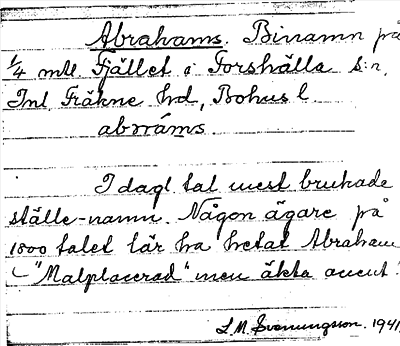 Abrahams. Binamn på
1/4 mtl Fjället i Forshälla s:n,
Inl. Fräkne hd, Bohus l.
abrams
I dagl tal mest brukade
ställe-namn. Någon ägare på
1800 talet lär ha hetat Abraham
"Malplacerad" men äkta accent!
J.M. Svenungsson. 1941